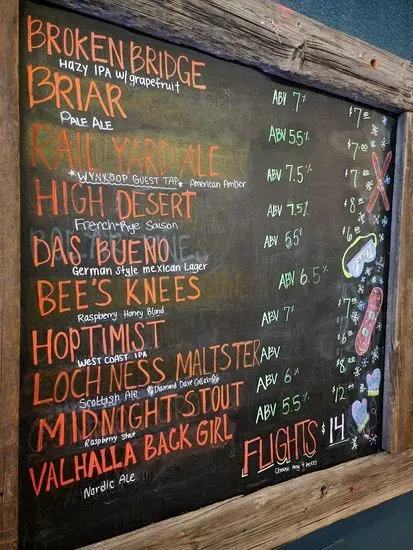 BROKEN BRIDGE ABV 7% $7.00
Hazy IPA w/ grapefruit
BRIAR ABV 5.5% $7.00
PALE ALE
RAIL YARD ALE ABV 7.5% $7
*WYNKOOP GUEST TAP* American Amber
HIGH DESERT ABV 7.5% $8
French-Rye Saison
DAS BUENO ABV 5.5% $6
German Style Mexican Lager
BEE'S KNEES ABV 6.5% $7
Raspberry Honey Blond
HOPTIMIST ABV 7% $6
WEST COAST IPA
LOCH NESS MALTSTER ABV $8
Scottish Ale Diamond Dave Collab
MIDNIGHT STOUT ABV 6% $12
Raspberry Stout
VALHALLA BACK GIRL ABV 5.5%
Nordic Ale
FLIGHTS $14
Choose Any 4 beers